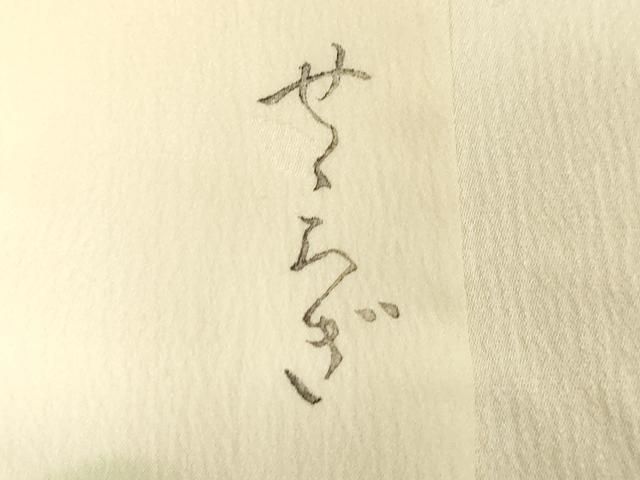 せゝらぎ